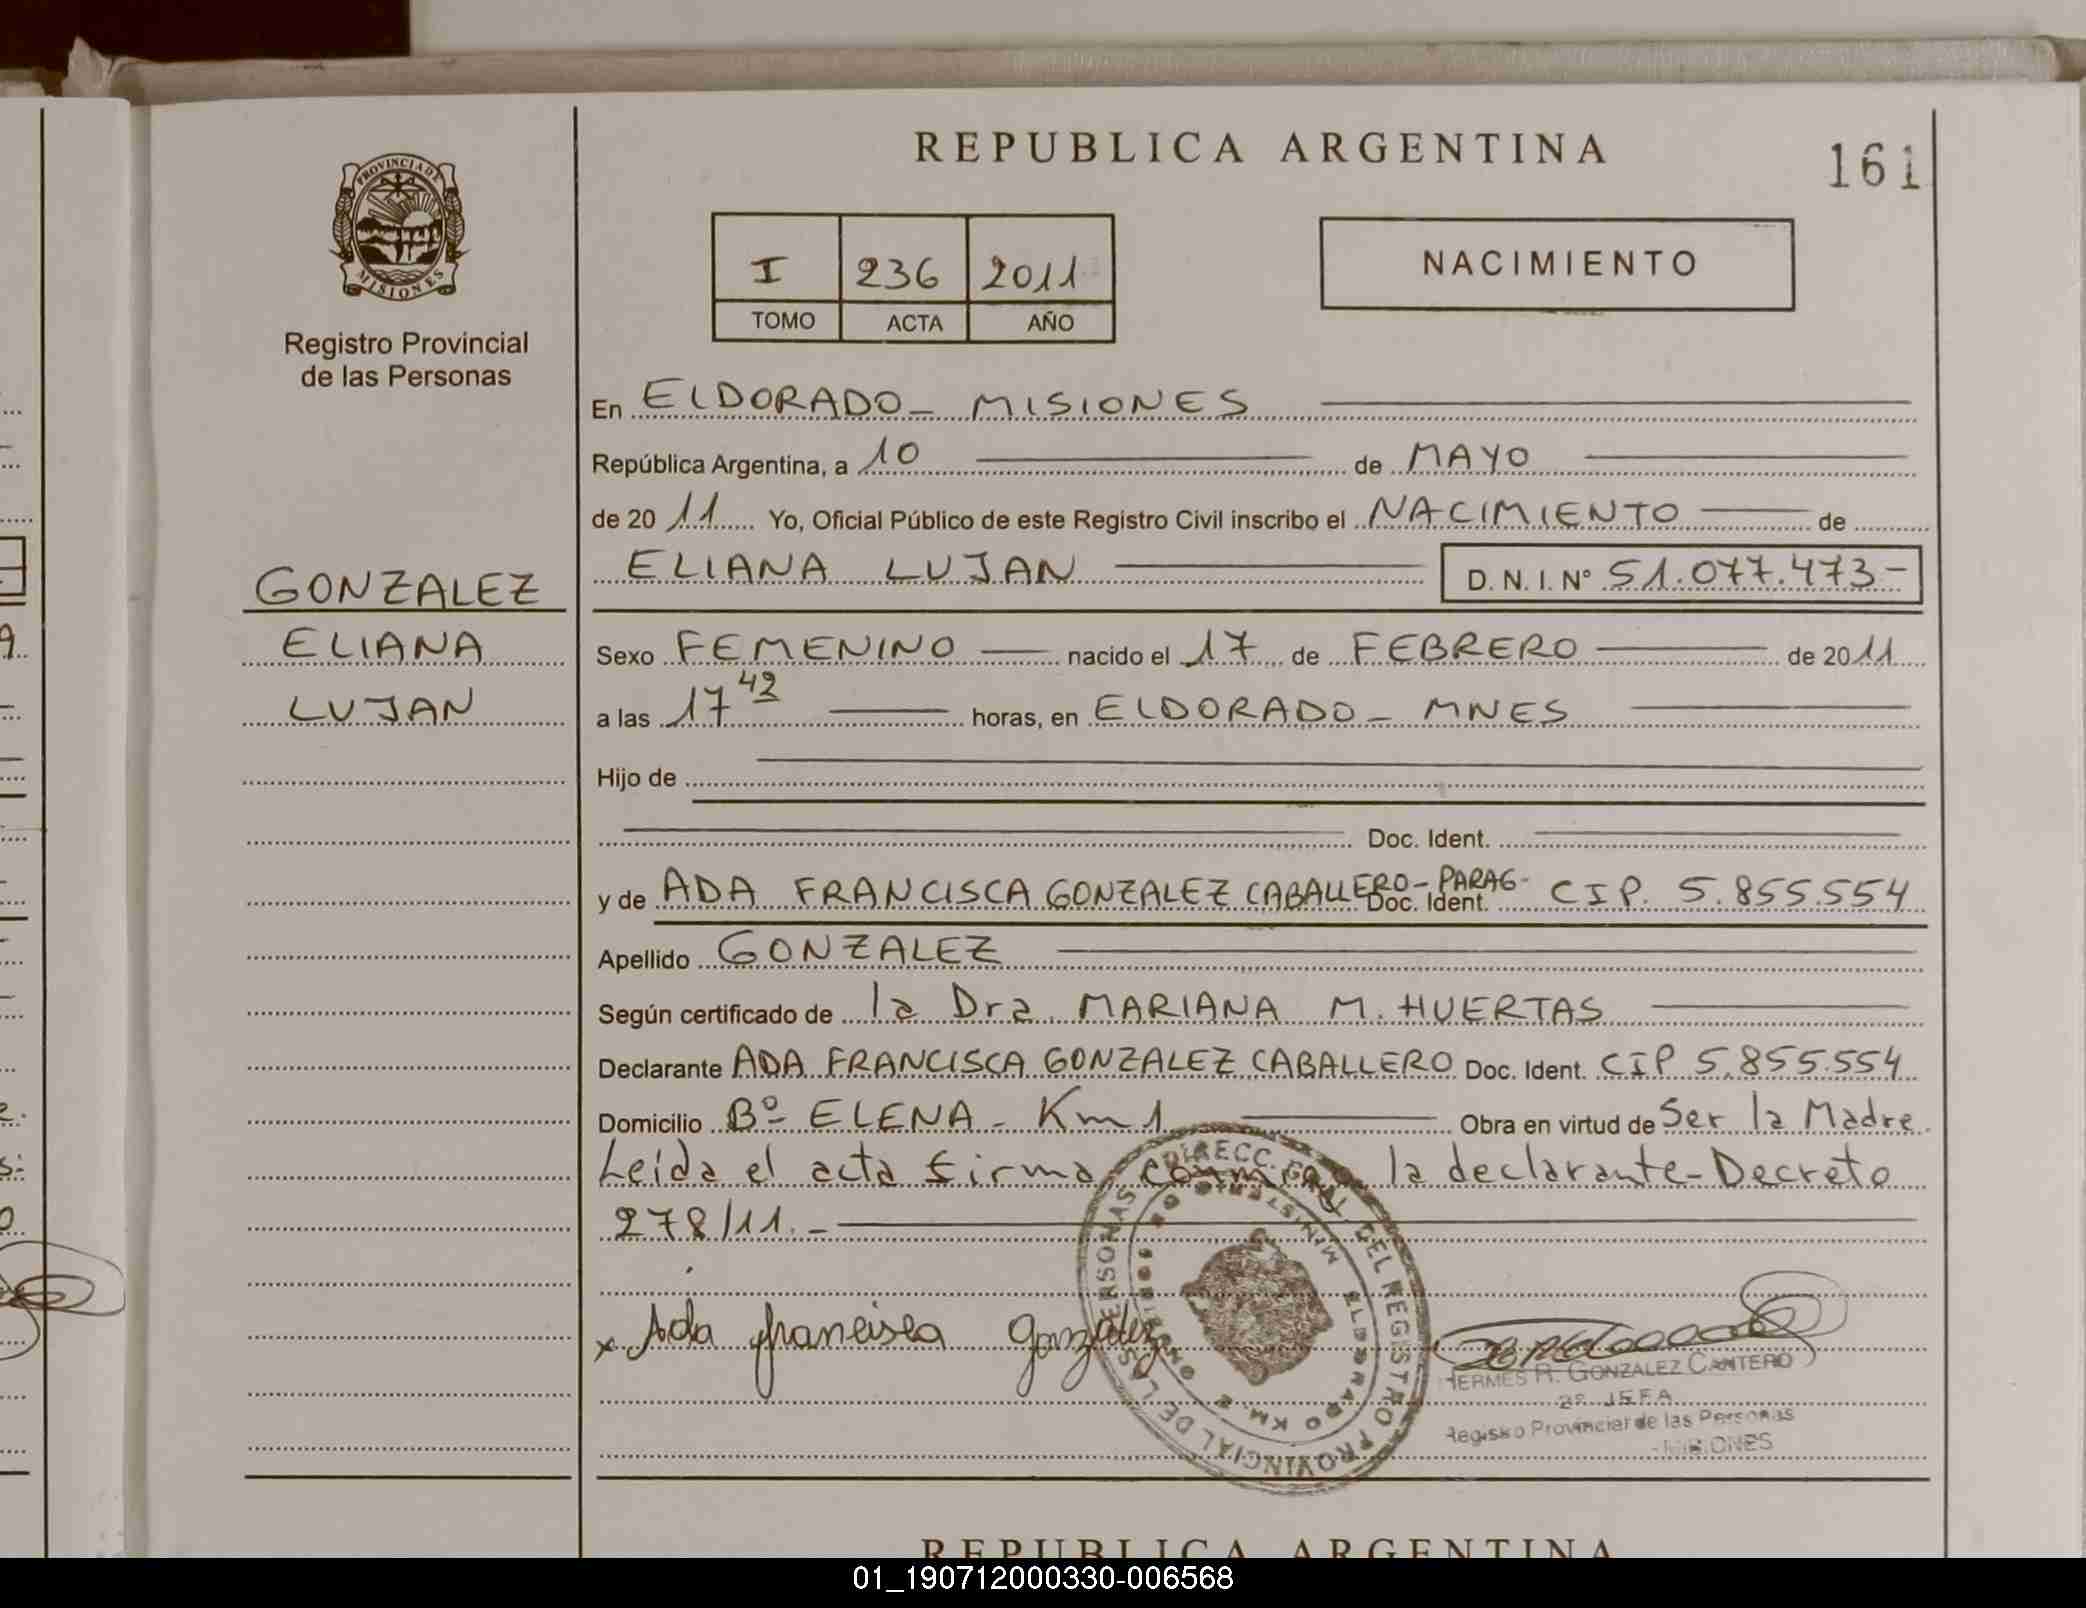 REPUBLICA ARGENTINA
161
PROVINCIA DE
MISIONES
Registro Provincial
de las Personas
I 236 2011
TOMO ACTA AÑO
NACIMIENTO
En ELDORADO - MISIONES
República Argentina, a 10 de MAYO
de 20 11 Yo, Oficial Público de este Registro Civil inscribo el NACIMIENTO de
ELIANA LUJAN D. N. I. Nº 51.077.473-
GONZALEZ
ELIANA
LUJAN
Sexo FEMENINO nacido el 17 de FEBRERO de 2011
a las 17 42 horas, en ELDORADO - MNES
Hijo de
Doc. Ident.
y de ADA FRANCISCA GONZALEZ CABALLERO - PARAG- Doc. Ident. CIP. 5.855.554
Apellido GONZALEZ
Según certificado de la Dra. MARIANA M. HUERTAS
Declarante ADA FRANCISCA GONZALEZ CABALLERO Doc. Ident. CIP 5.855.554
Domicilio Bº ELENA - Km 1 Obra en virtud de Ser la Madre.
Leída el acta firma conmigo la declarante - Decreto
278/11.-
x Ada francisca Gonzalez
DIRECC. GRAL. DEL REGISTRO PROVINCIAL DE LAS PERSONAS
MINISTERIO DE GOBIERNO
ELDORADO KM. 2
HERMES R. GONZALEZ CANTERO
2º JEFA
Registro Provincial de las Personas
- MISIONES
REPUBLICA ARGENTINA
01_190712000330-006568